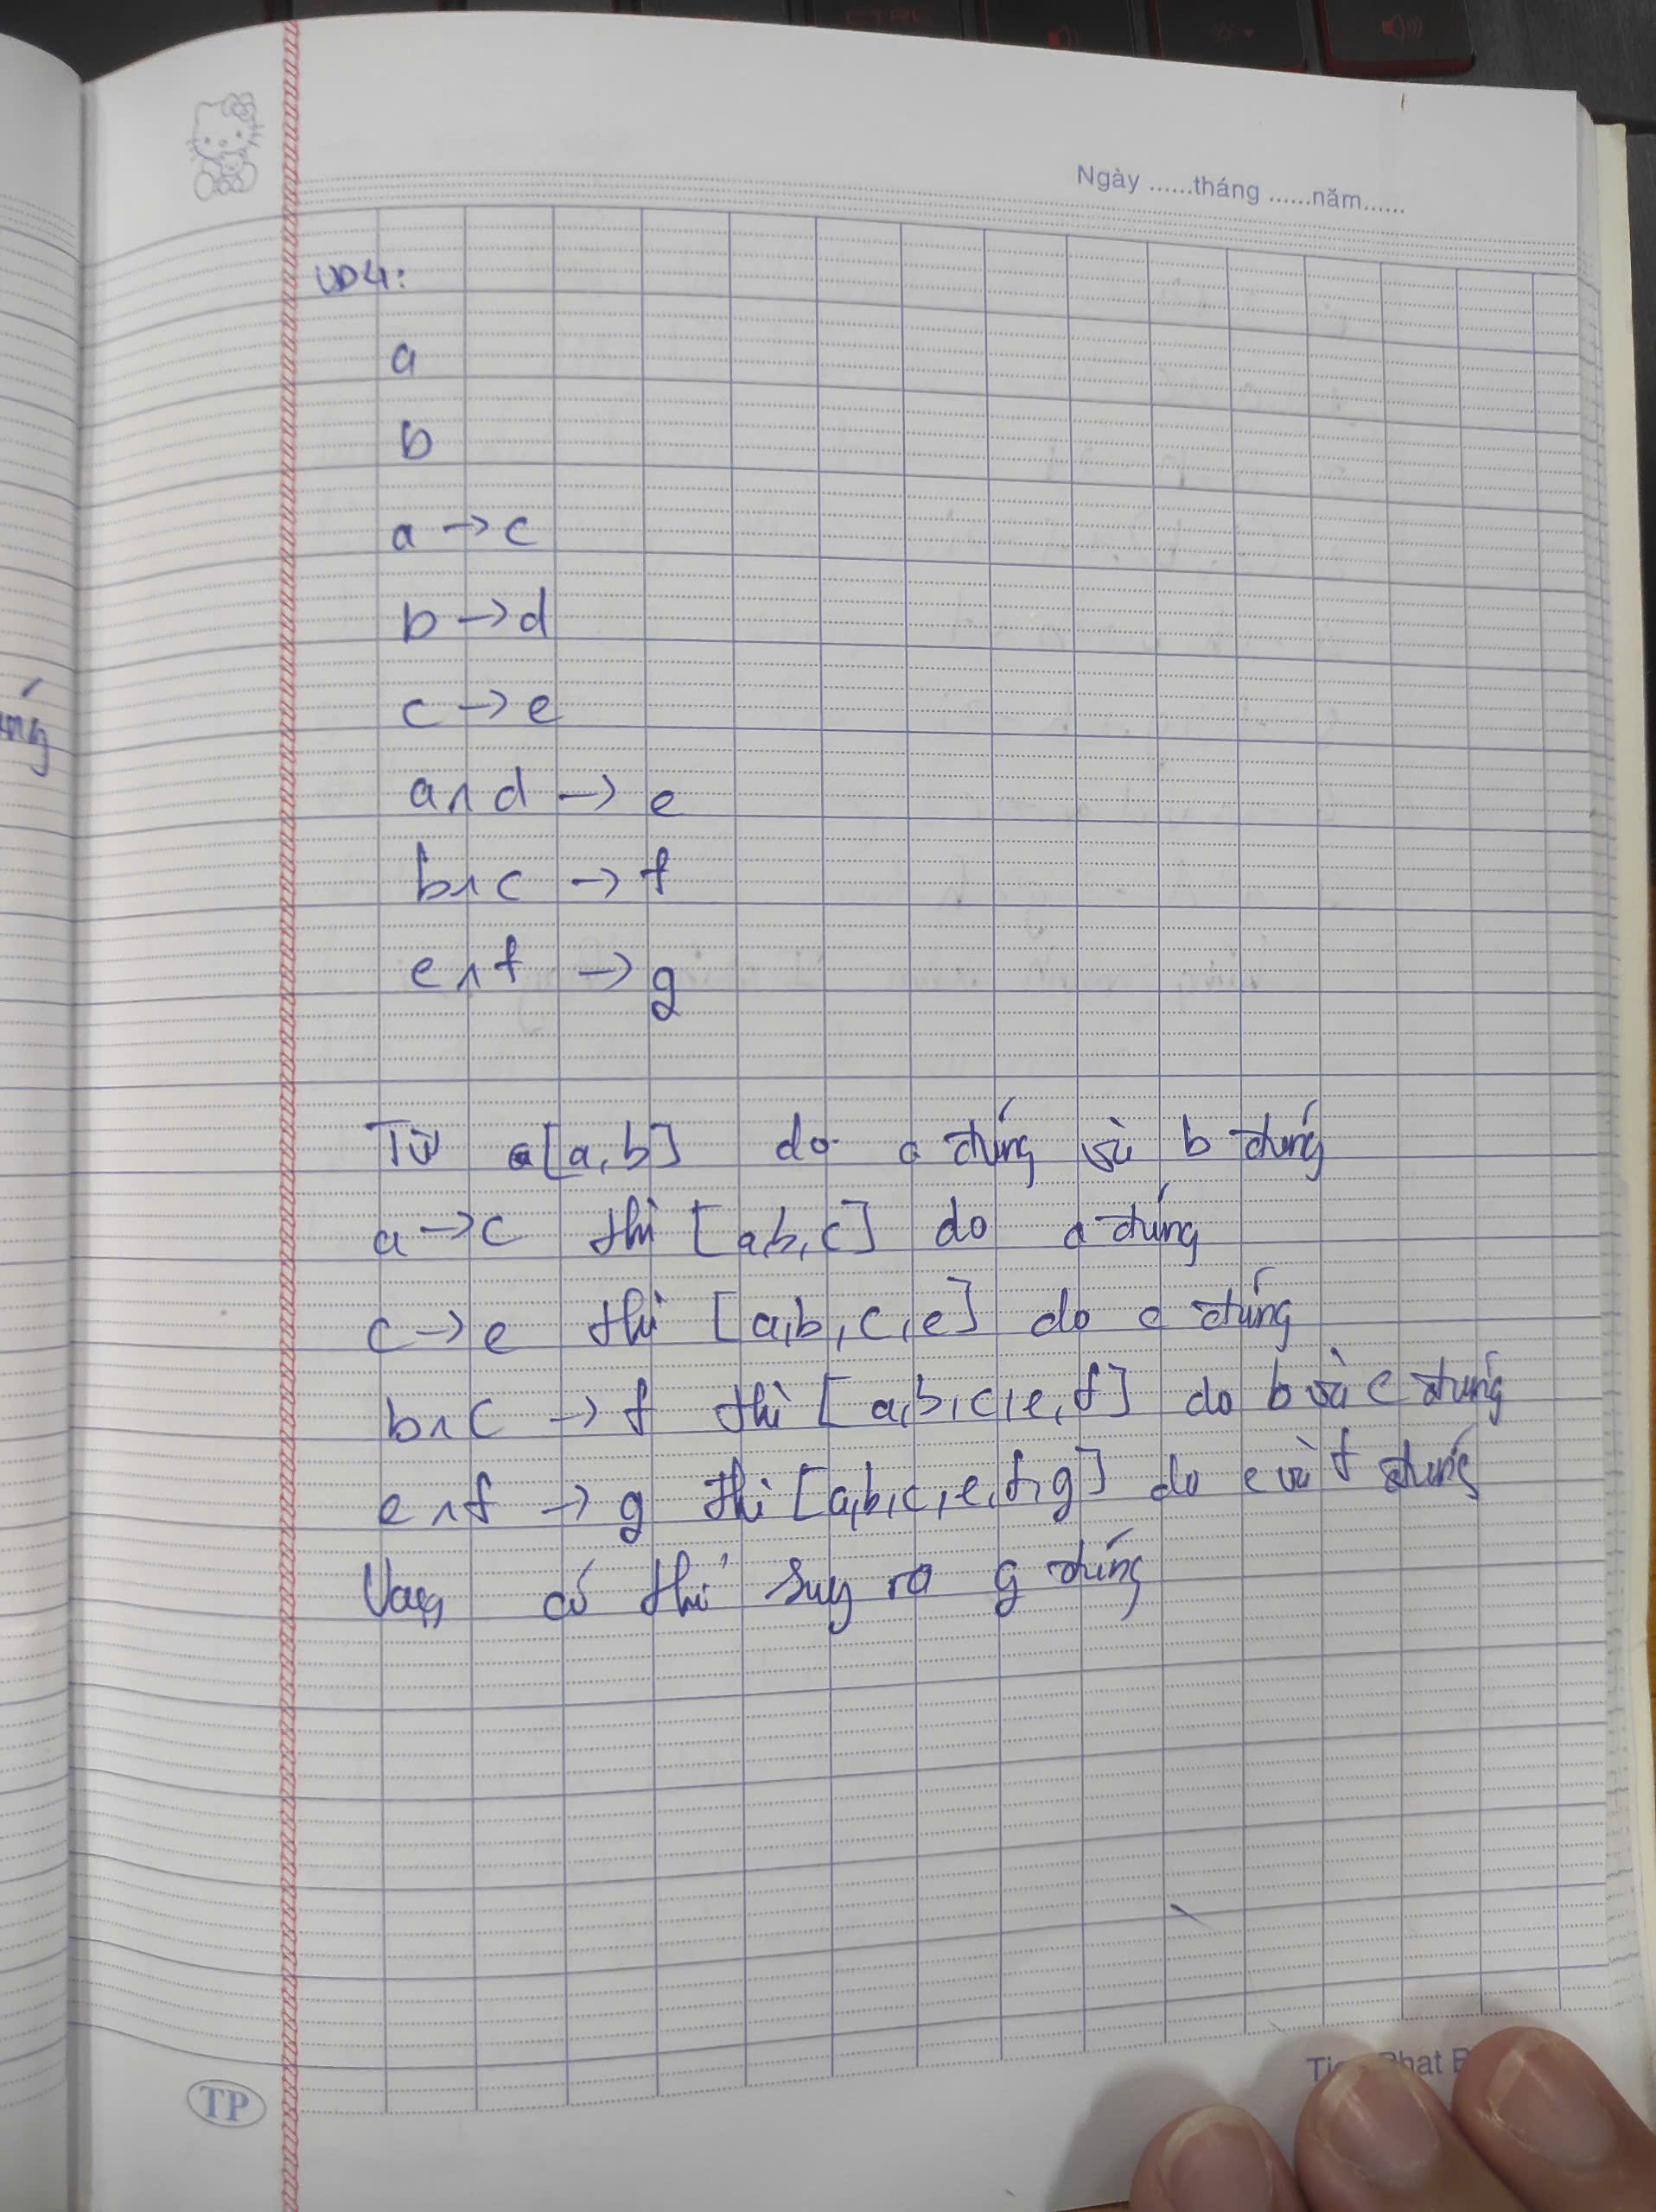 CTRL
Ngày ......tháng ......năm......
VD4:
a
b
a → c
b → d
c → e
a ∧ d → e
b ∧ c → f
e ∧ f → g
Từ [a, b] do a đúng và b đúng
a → c thì [a, b, c] do a đúng
c → e thì [a, b, c, e] do c đúng
b ∧ c → f thì [a, b, c, e, f] do b và c đúng
e ∧ f → g thì [a, b, c, e, f, g] do e và f đúng
Vậy có thể suy ra g đúng
TP